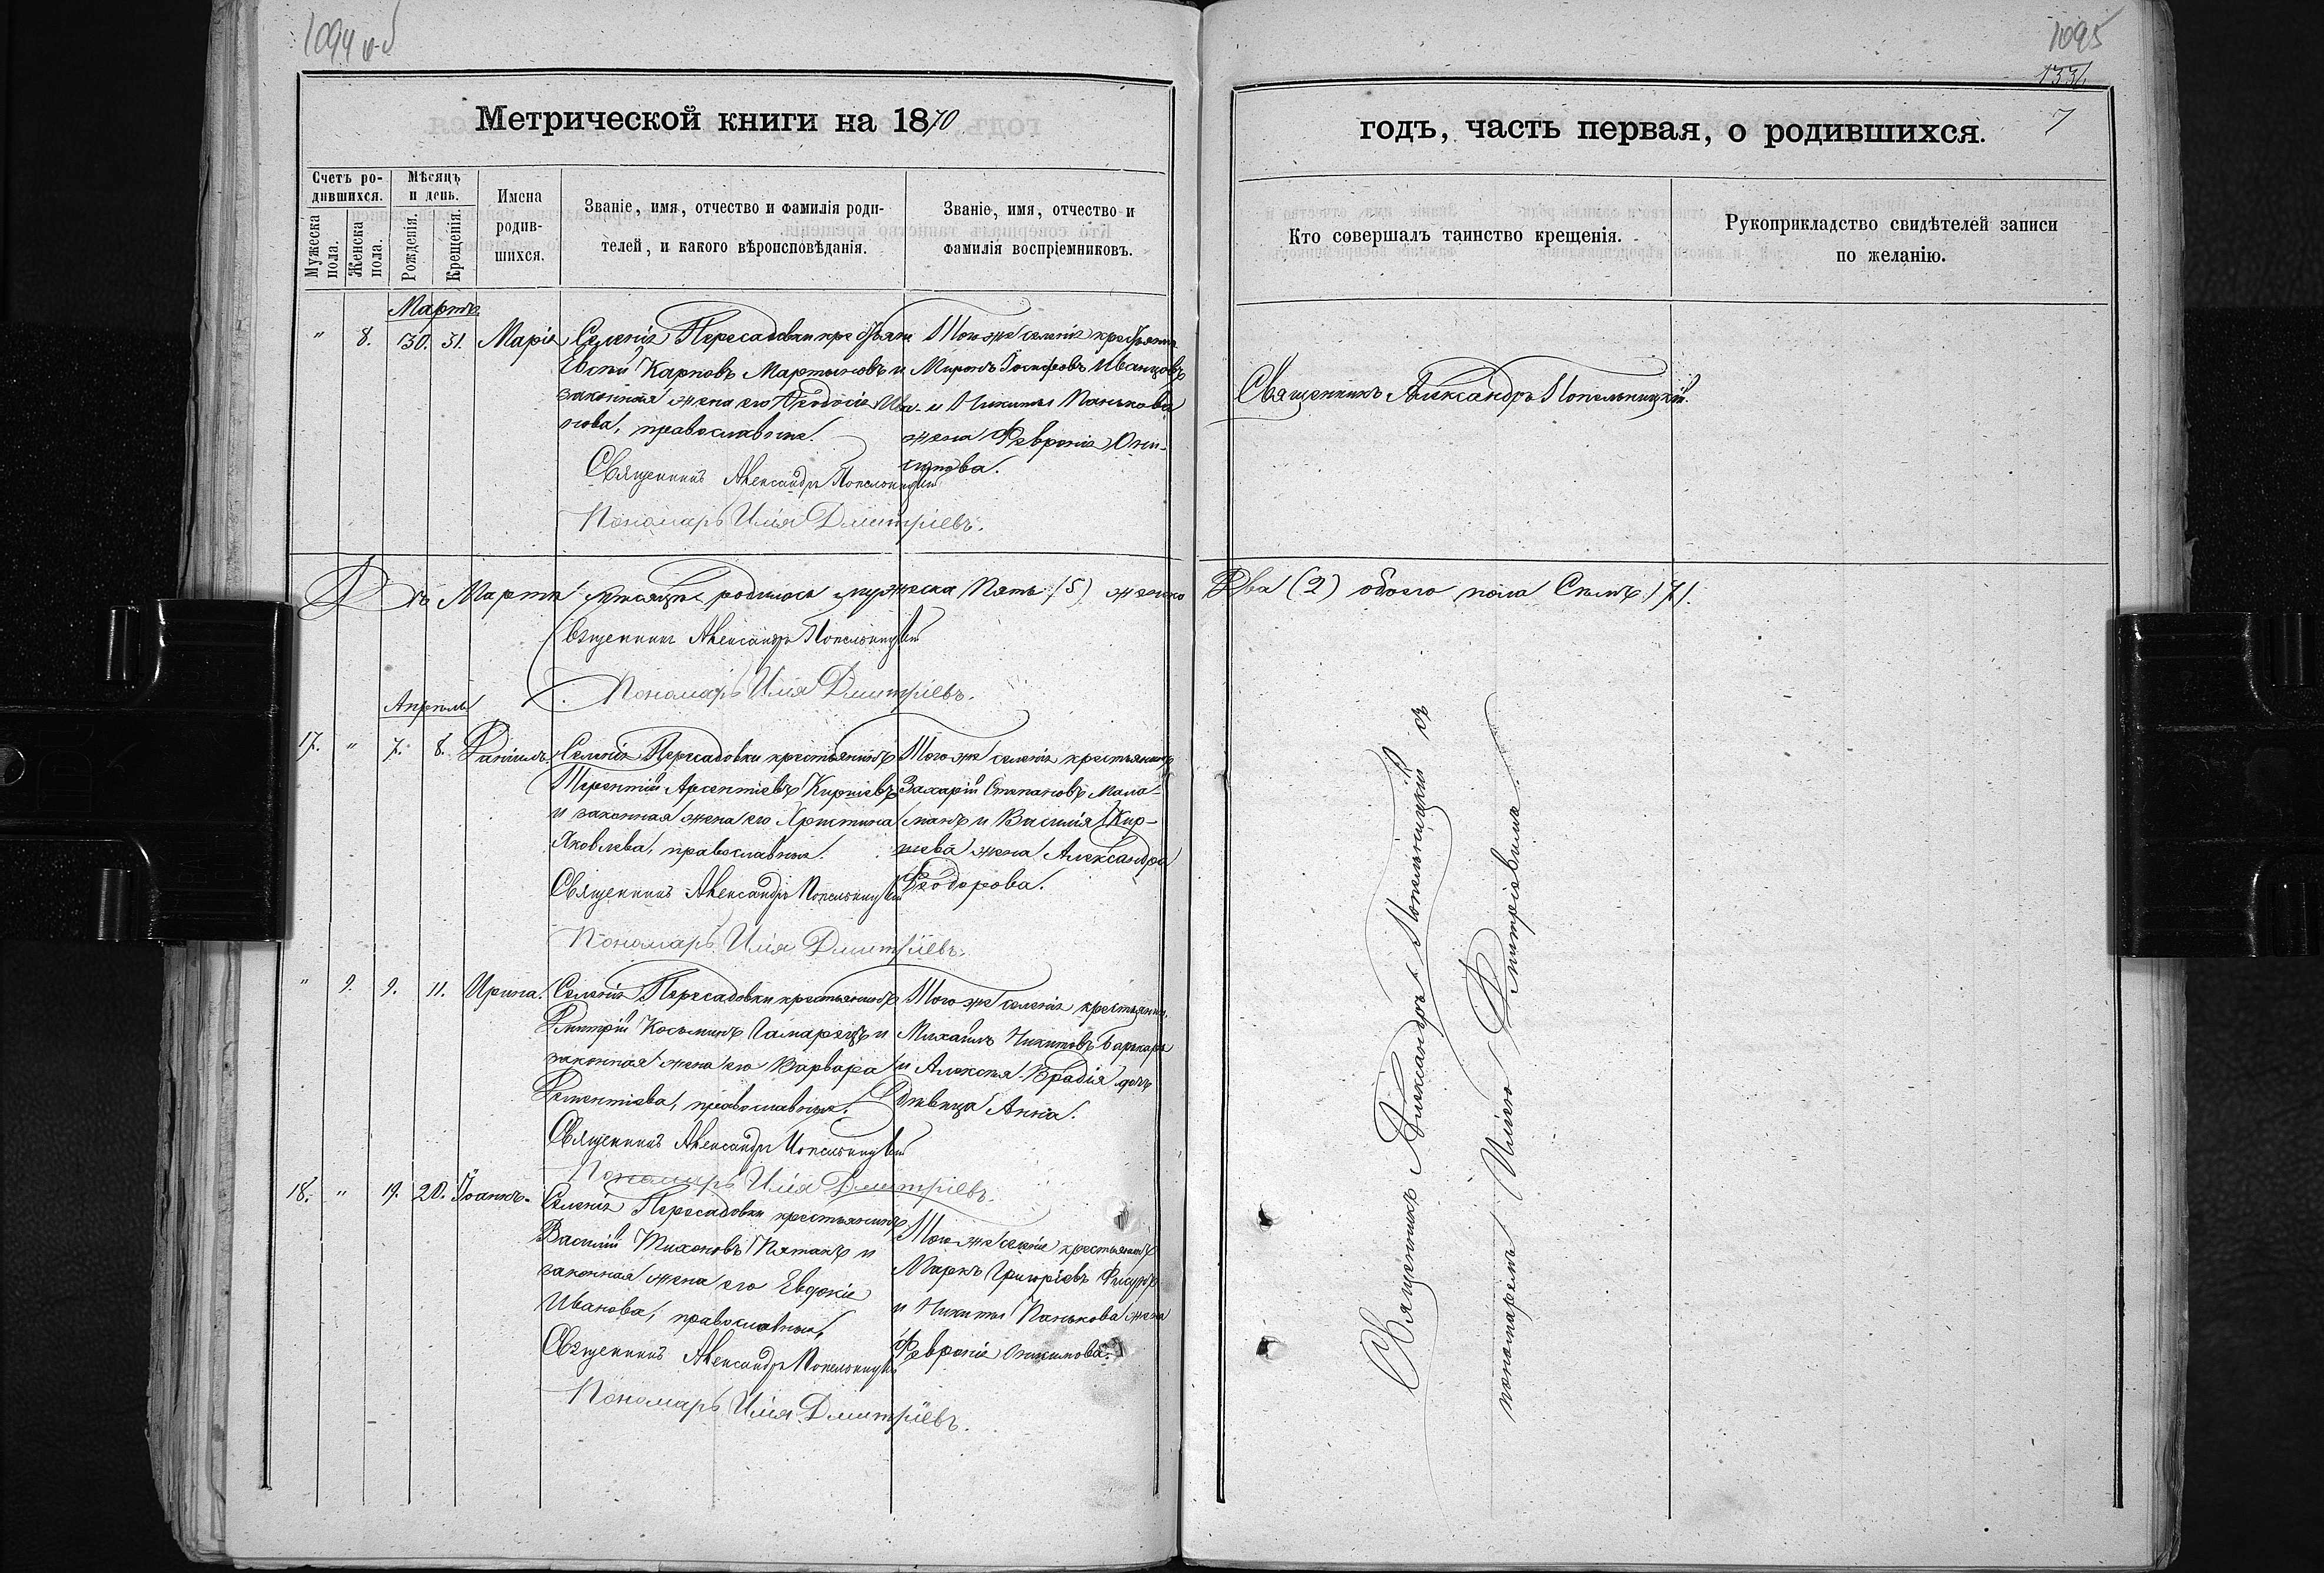 1094 об
Метрической книги на 1870
Счетъ ро-
дившихся.
Мѣсяцъ
и день.
Мужеска
пола.
Женска
пола.
Рожденія.
Крещенія.
Имена
родив-
шихся.
Званіе, имя, отчество и фамилія роди-
телей, и какого вѣроисповѣданія.
Званіе, имя, отчество и
фамилія воспріемниковъ.
Мартъ
" 8. 30. 31. Марія
Селенія Пересадовки крестьянинъ
Евсей Карповъ Мартыновъ и
законная жена его Ѳеодосія Ива-
нова, православные.
Того же селенія крестьянинъ
Миронъ Іосифовъ Иванцовъ
и Никиты Панькова
жена Февронія Они-
симова.
Священникъ Александръ Попельницкій
Пономарь Илія Дмитріевъ.
Въ Мартѣ мѣсяцѣ родилось мужеска Пять (5) женска
Священникъ Александръ Попельницкій
Пономарь Илія Дмитріевъ.
Апрѣль
17. " 7. 8. Даніилъ
Селенія Пересадовки крестьянинъ
Терентій Арсентіевъ Кирпіевъ
и законная жена его Христина
Яковлева, православные.
Того же селенія крестьянинъ
Захарій Степановъ Мала-
манъ и Василія Кир-
піева жена Александра
Ѳеодорова.
Священникъ Александръ Попельницкій
Пономарь Илія Дмитріевъ.
" 9. 9. 11. Ирина.
Селенія Пересадовки крестьянинъ
Дмитрій Косьминъ Гамарецъ и
законная жена его Варвара
Дементіева, православные.
Того же селенія крестьянинъ
Михаилъ Никитовъ Барыкаръ
и Алексѣя Врадія дочь
дѣвица Анна.
Священникъ Александръ Попельницкій
Пономарь Илія Дмитріевъ.
18. " 19. 20. Іоаннъ.
Селенія Пересадовки крестьянинъ
Василій Тихоновъ Пятакъ и
законная жена его Евдокія
Иванова, православные.
Того же селенія крестьянинъ
Маркъ Григоріевъ
и Никиты Панькова жена
Февронія Онисимова.
Священникъ Александръ Попельницкій
Пономарь Илія Дмитріевъ.
1095
133
7
годъ, часть первая, о родившихся.
Кто совершалъ таинство крещенія.
Рукоприкладство свидѣтелей записи
по желанію.
Священникъ Александръ Попельницкій.
Два (2) обоего пола Семь (7).
Священникъ Александръ Попельницкій съ
пономаремъ Иліею Дмитріевымъ.